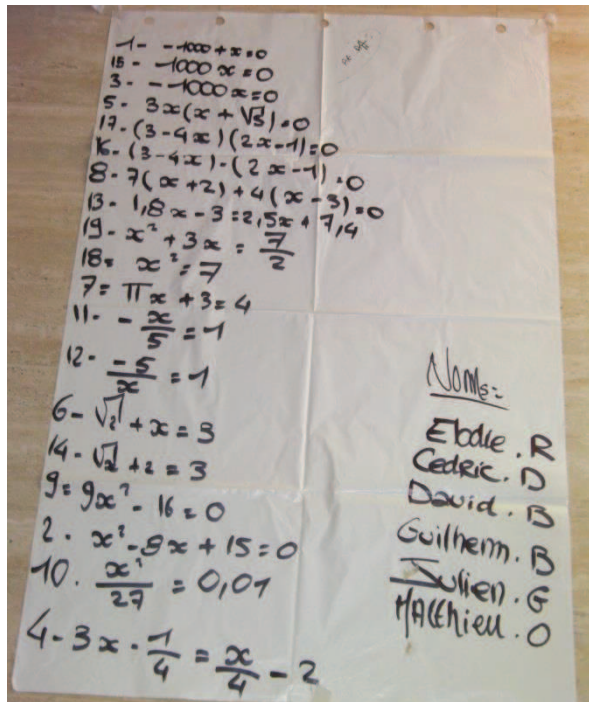 1 - -1000 + x = 0
15 - -1000 x = 0
3 - -1000 x = 0
5 - 3x(x + √3) = 0
17 - (3-4x)(2x-1) = 0
16 - (3-4x) - (2x-1) = 0
8 - 7(x+2) + 4(x-3) = 0
13 - 1,8x - 3 = 2,5x + 7,4
19 - x² + 3x = 7/2
18 = x² = 7
7 = πx + 3 = 4
11 - - x/5 = 1
12 - -5/x = 1
6 - √2 + x = 3
14 - √x + 2 = 3
9 = 9x² - 16 = 0
2 - x² - 9x + 15 = 0
10. x²/27 = 0,01
4 - 3x - 1/4 = x/4 - 2
Noms =
Elodie . R
Cedric . D
David . B
Guilherm . B
Julien . G
Matthieu . O